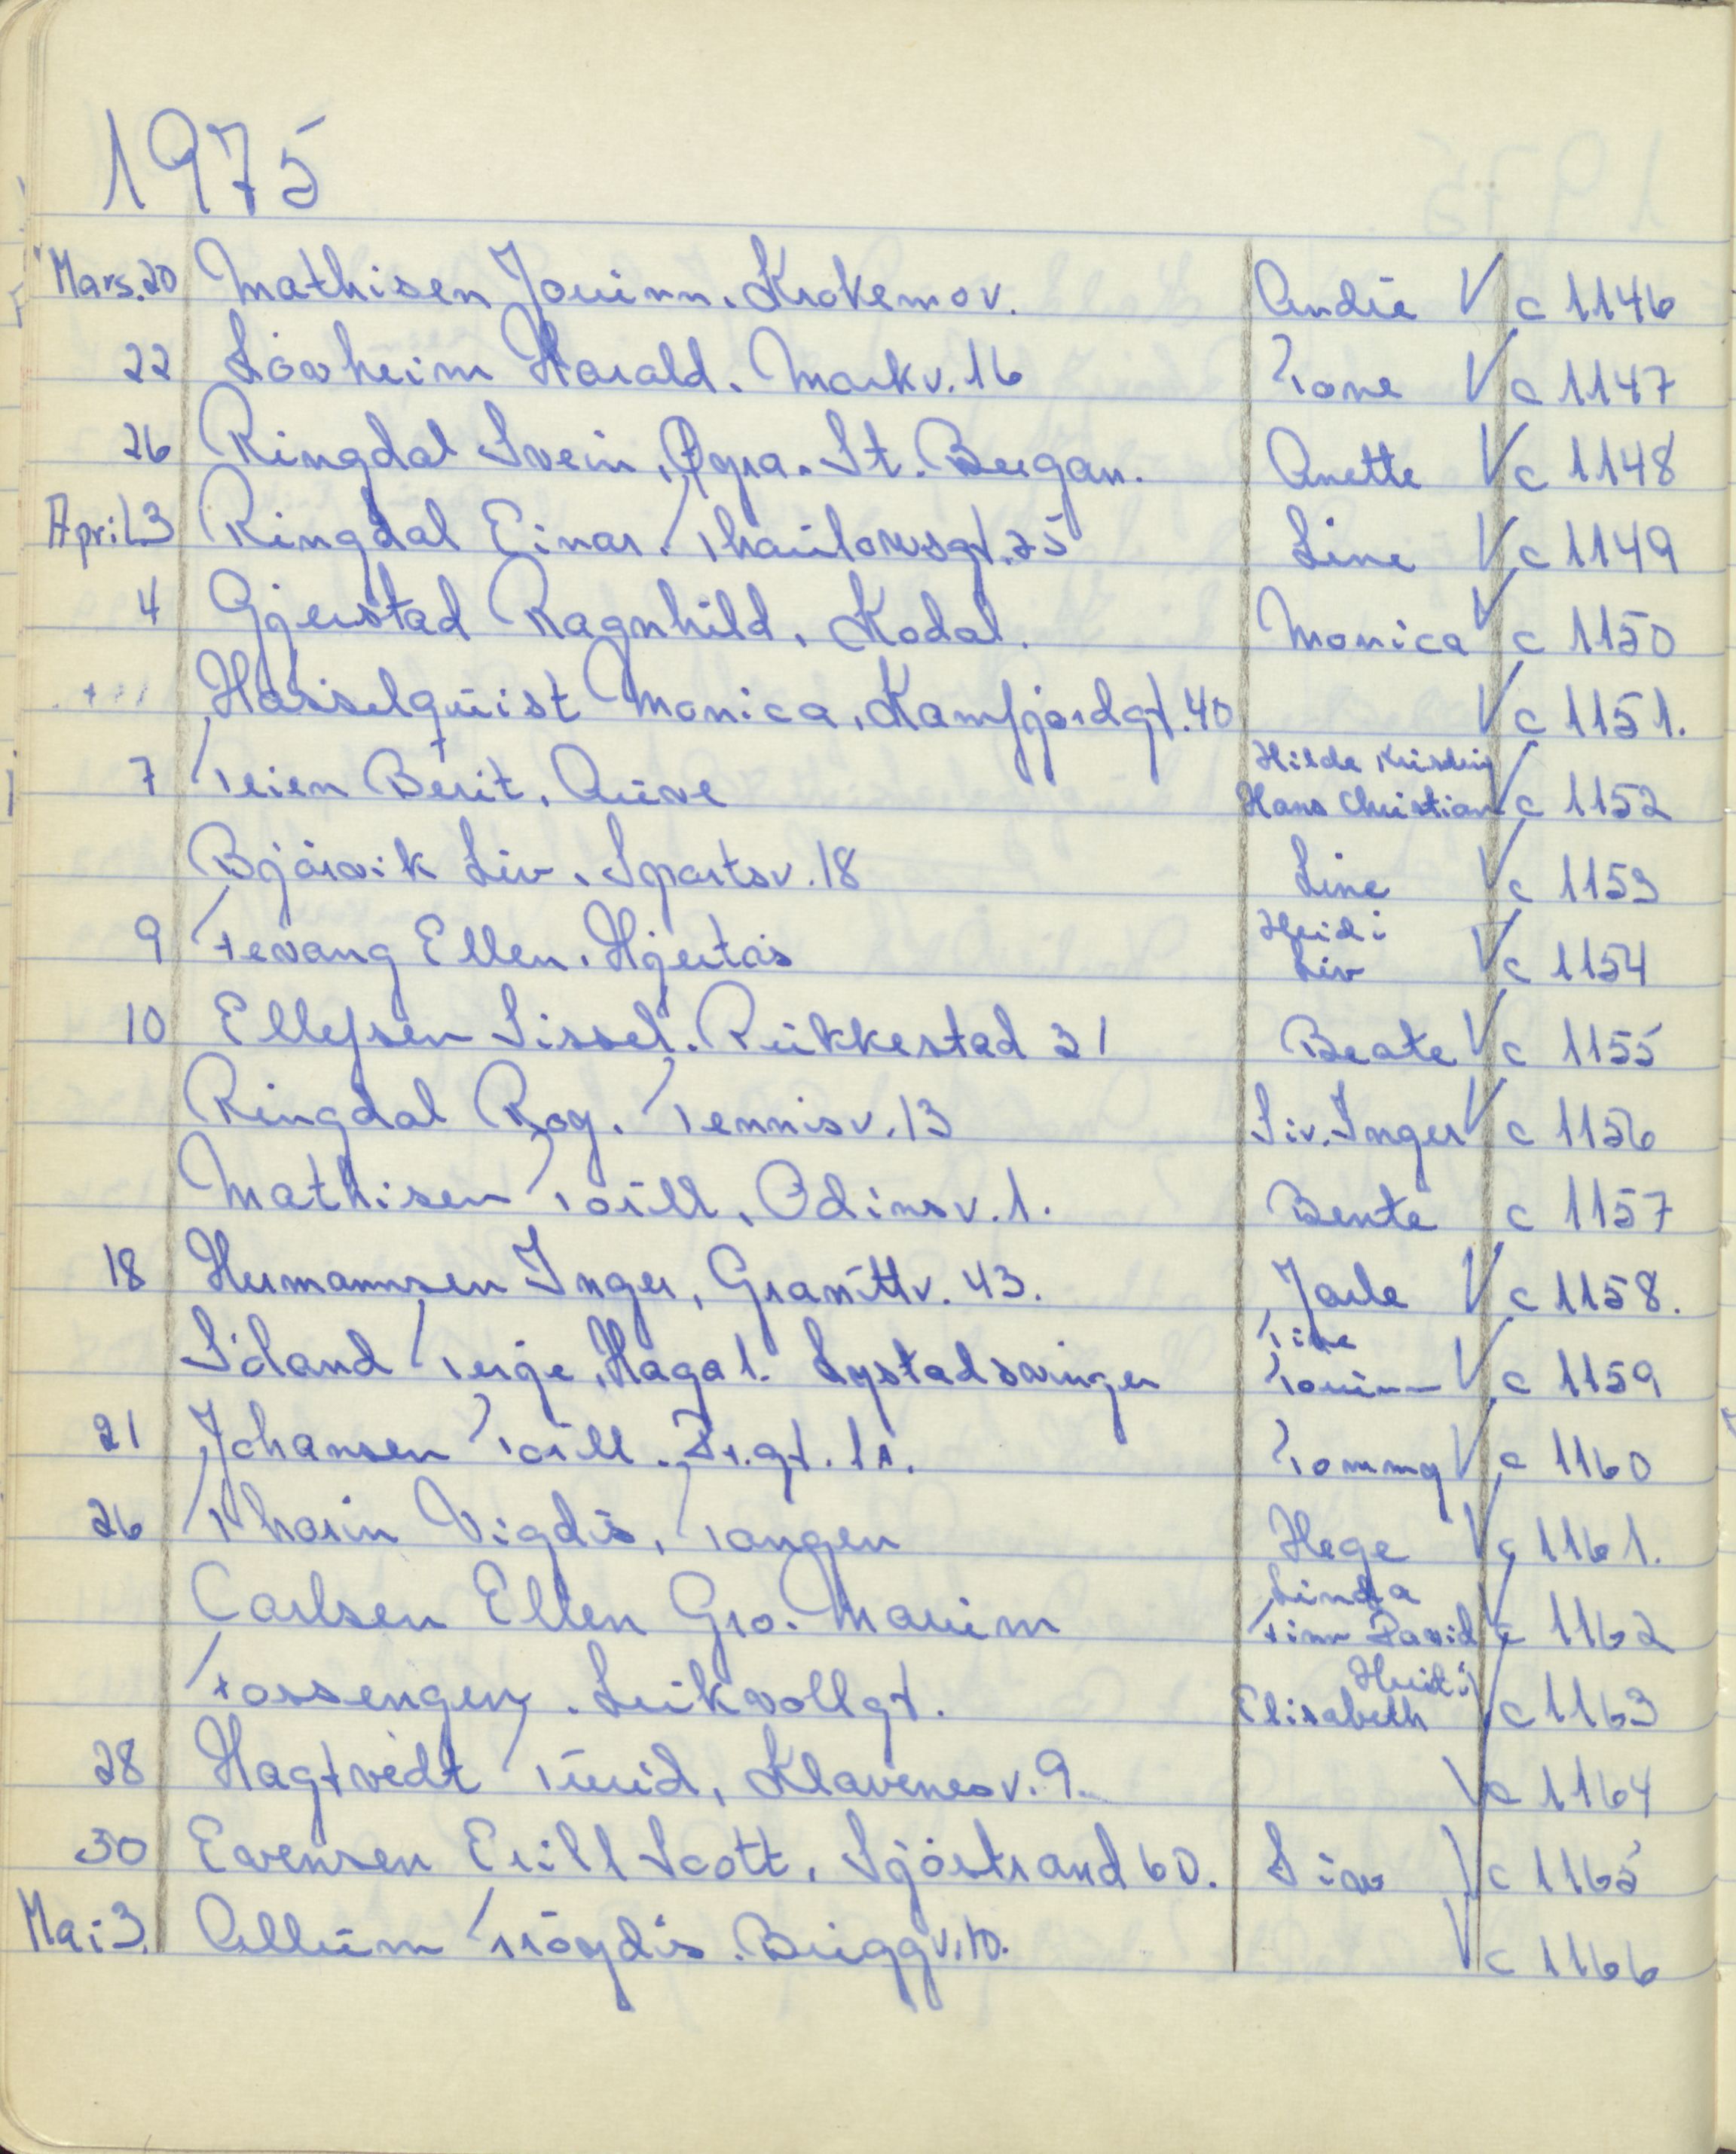 1975
Mars.20 Mathisen Jorunn. Krokemov. Andre V c 1146
22 Lövheim Harald. Markv. 16 Tone V c 1147
26 Ringdal Svein, Øyra. St. Bergan. Anette V c 1148
April.3 Ringdal Einar. Thaulowsgt. 25 Line V c 1149
4 Gjerstad Ragnhild, Kodal. Monica V c 1150
Hasselquist Monica, Kamfjordgt. 40 V c 1151.
Hilde Kristin
7 Teien Berit, Auve Hans Christian V c 1152
Bjørvik Liv. Sportsv. 18 Line V c 1153
Heidi
9 Fevang Ellen. Hjertås Liv V c 1154
10 Ellefsen Sissel. Rukkestad 21 Beate V c 1155
Ringdal Roy. Tennisv. 13 Siv. Inger V c 1156
Mathisen Torill, Odinsv. 1. Bente c 1157
18 Hermannsen Inger, Granittv. 43. Jarle V c 1158.
Tine
Söland Terje, Haga 1. Lystadsvingen Torunn V c 1159
21 Johansen Torill. Dr.gt. 1A. Tommy V c 1160
26 Thorin Vigdis, Tangen Hege V c 1161.
Linda
Carlsen Ellen Gro. Marum Finn David V c 1162
Heidi
Fossengen, Leikvollgt. Elisabeth V c 1163
28 Hagtvedt Turid, Klavenesv. 9. V c 1164
30 Evensen Erill Scott. Sjöstrand 60. Siv V c 1165
Mai 3. Allum Fröydis. Bruggv. 10. V c 1166